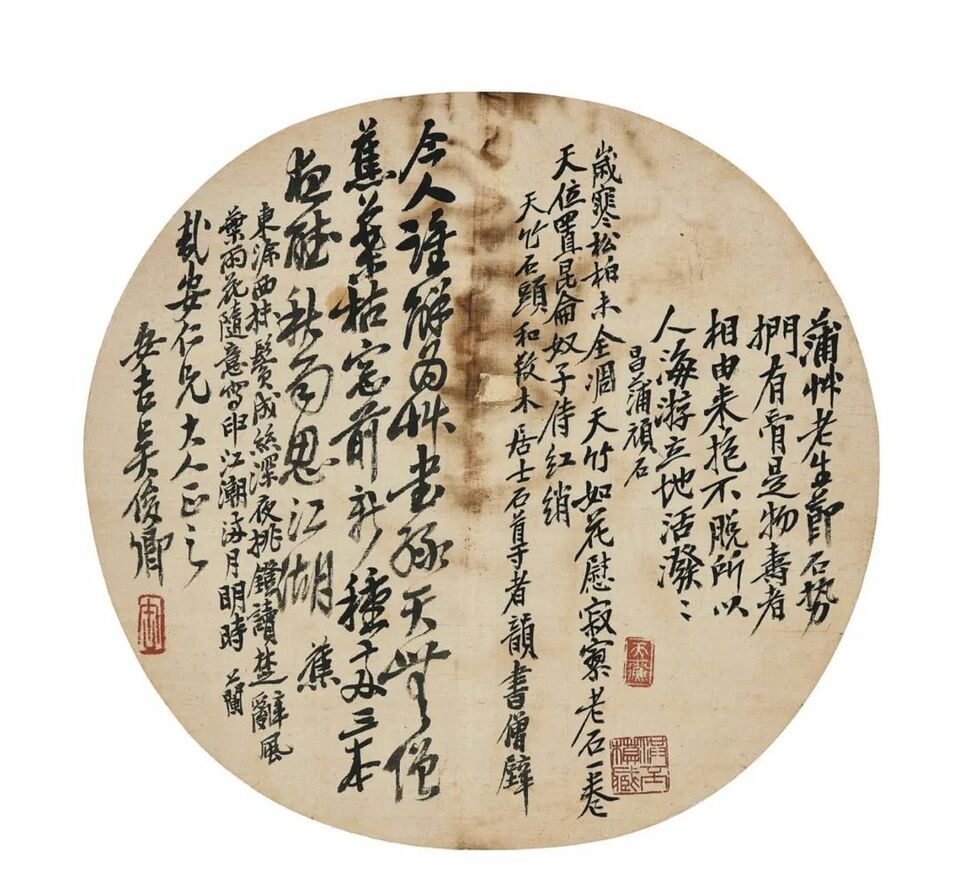 蒲艸老生節石勢
捫有骨是物壽者
相由来抱不脱所以
人海游立地活潑〻
昌蒲頑石
歲寒松柏未全凋天竹如花慰寂寥老石一卷
天位置昆侖奴子侍紅綃
天竹石頭和教木居士石尊者韻書僧壁
今人誰解為艸書綠天無僧
蕉葉枯窓前新種兩三本
夜聽秋雨思江湖 蕉
東涂西抹鬢成絲深夜挑鐙讀楚辭風
葉雨花隨意寫印江潮海月明時 蘭
安仁兄大人正之
安吉吴俊卿